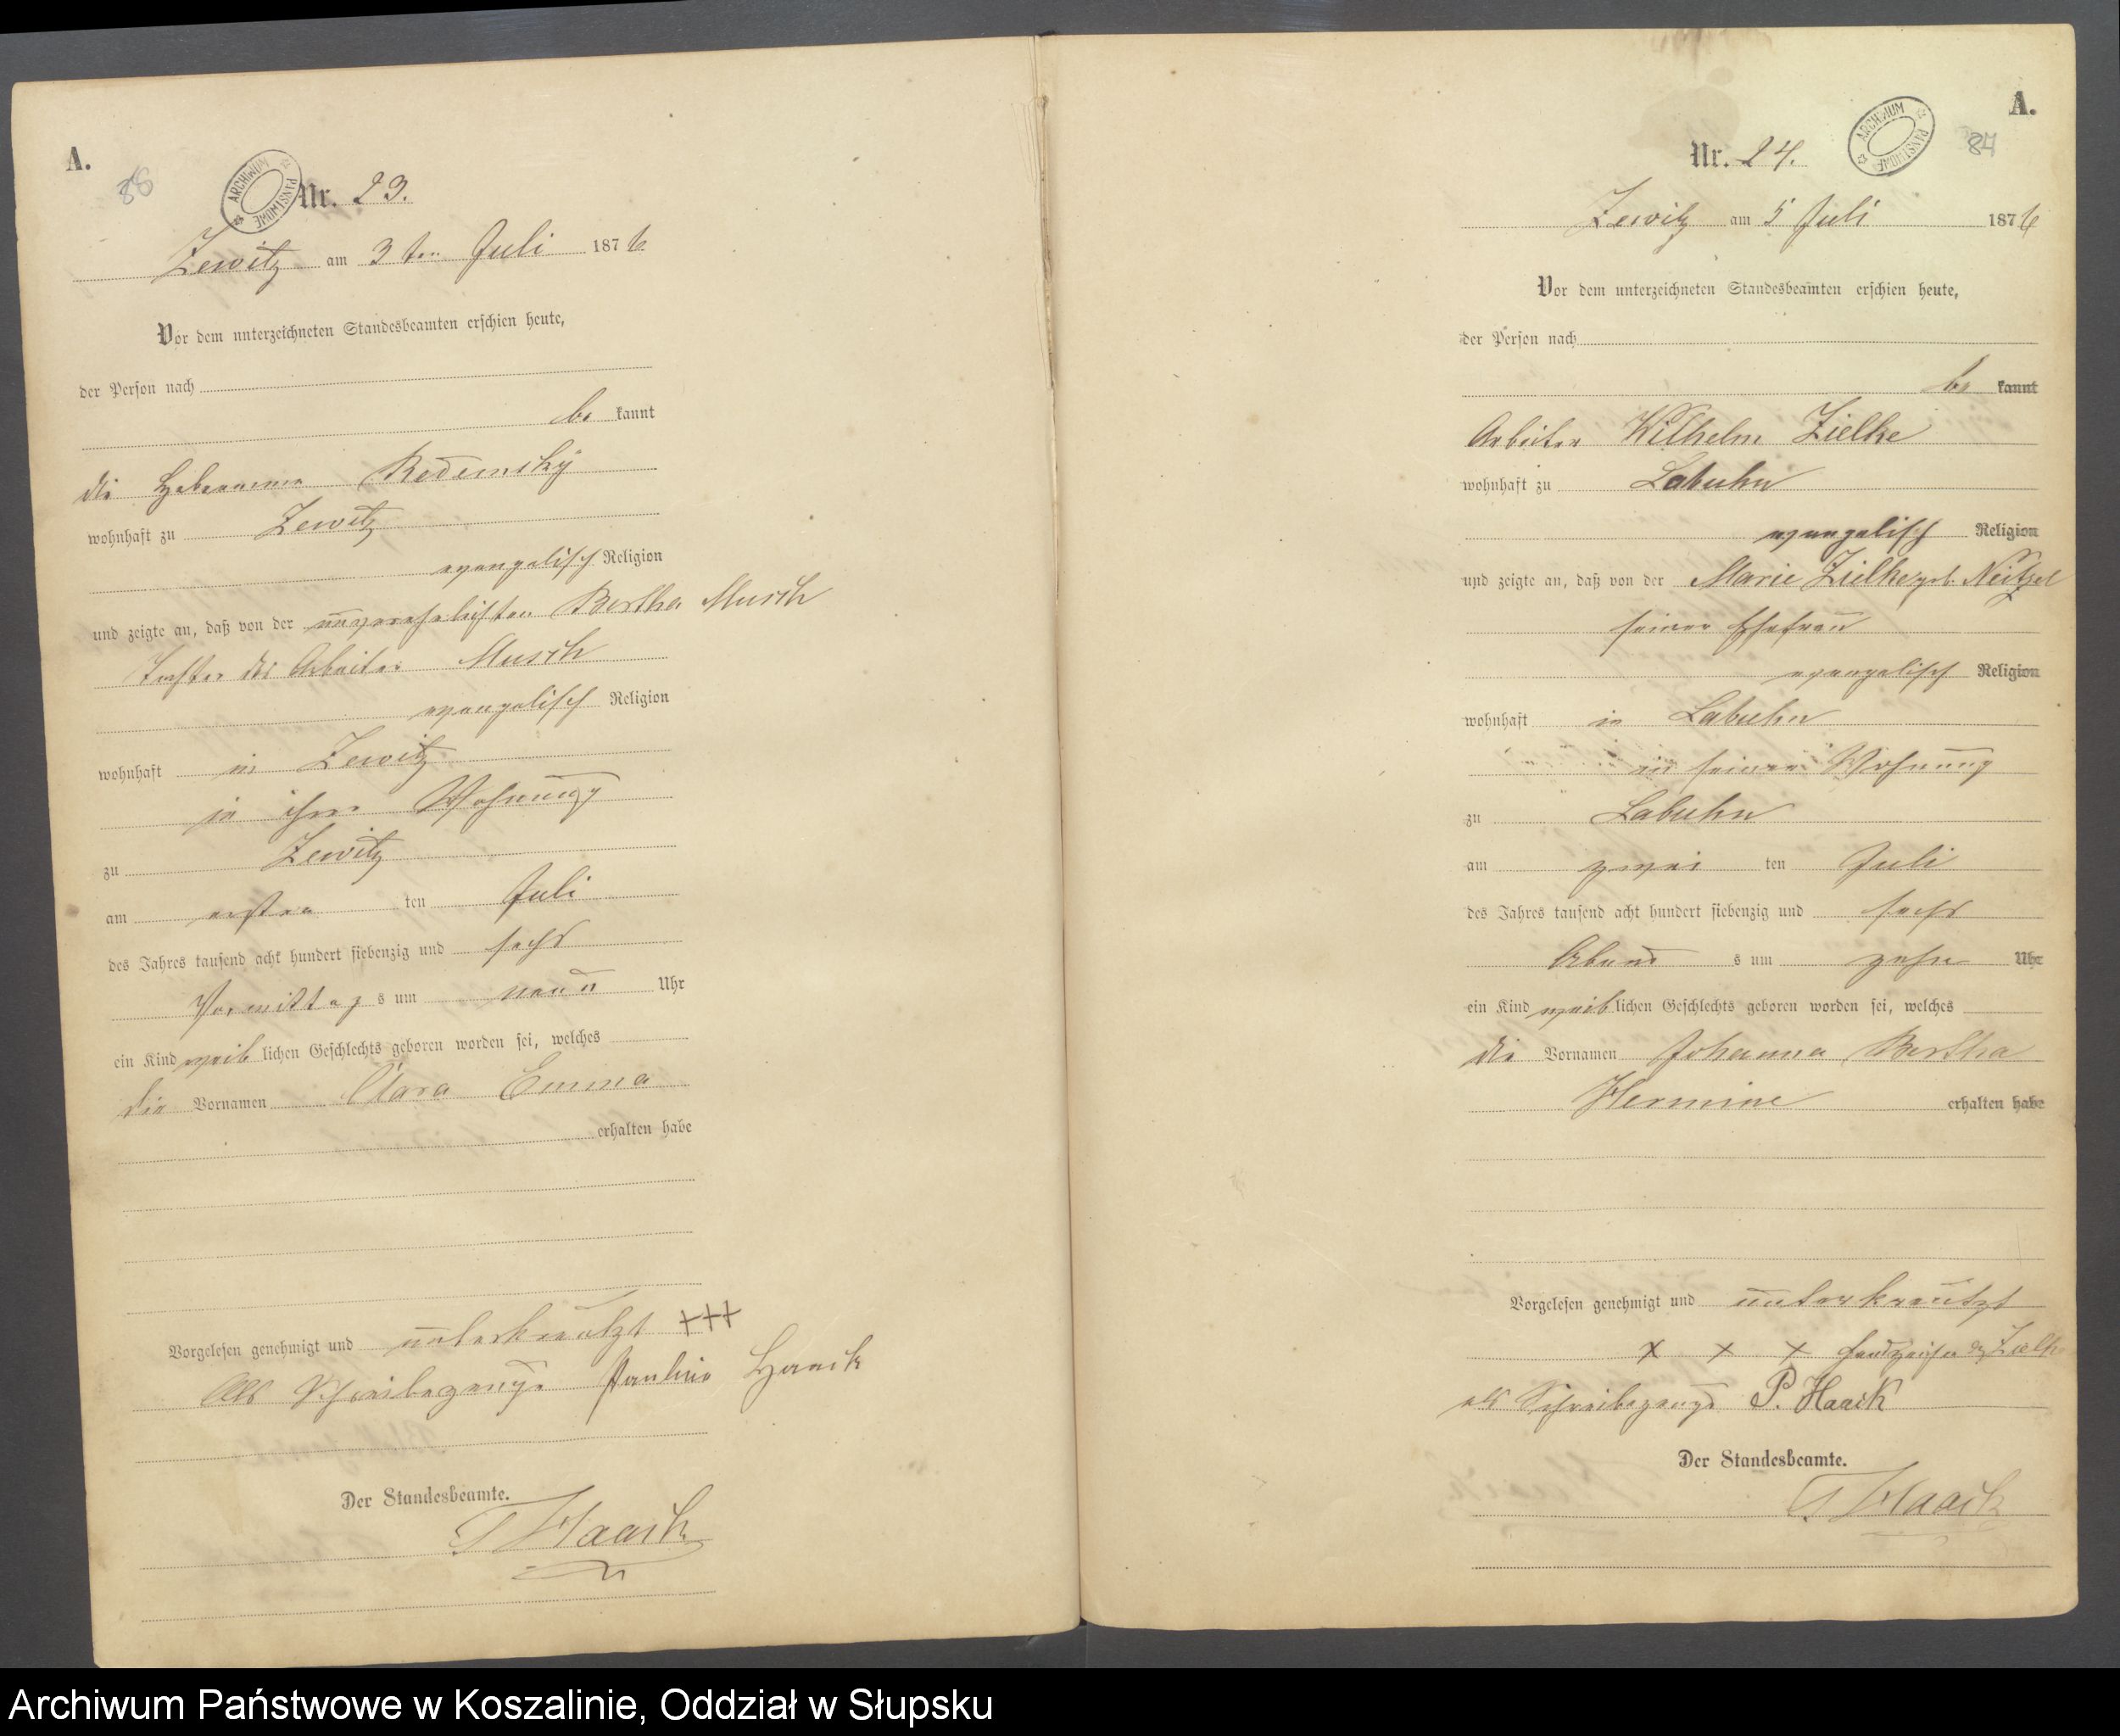 A.
88
ARCHIWUM PAŃSTWOWE
Nr. 23.
Zewitz am 3ten Juli 1876
Vor dem unterzeichneten Standesbeamten erschien heute,
der Person nach
be kannt
die Hebamme
wohnhaft zu Zewitz
evangelisch Religion
und zeigte an, daß von der unverehelichten Bertha Musch
Tochter des Arbeiter Musch
evangelisch Religion
wohnhaft in Zewitz
in ihrer Wohnung
zu Zewitz
am ersten ten Juli
des Jahres tausend acht hundert siebenzig und sechs
Vormittag s um neun Uhr
ein Kind weib lichen Geschlechts geboren worden sei, welches
die Vornamen Clara Emma
erhalten habe
Vorgelesen genehmigt und unterkreutzt +++
Als Schreibezeuge Pauline Haack
Der Standesbeamte.
Haack
A.
Nr. 24.
ARCHIWUM PAŃSTWOWE
84
Zewitz am 5 Juli 1876
Vor dem unterzeichneten Standesbeamten erschien heute,
der Person nach
be kannt
Arbeiter Wilhelm Zielke
wohnhaft zu Labuhn
evangelisch Religion
und zeigte an, daß von der Marie Zielke geb. Neitzel
seiner Ehefrau
evangelisch Religion
wohnhaft in Labuhn
in seiner Wohnung
zu Labuhn
am zwei ten Juli
des Jahres tausend acht hundert siebenzig und sechs
Abend s um zehn Uhr
ein Kind weib lichen Geschlechts geboren worden sei, welches
die Vornamen Johanna Bertha
Hermine erhalten habe
Vorgelesen genehmigt und unterkreutzt
x x x Handzeichen des Zielke
als Schreibezeuge P. Haack
Der Standesbeamte.
Haack
Archiwum Państwowe w Koszalinie, Oddział w Słupsku